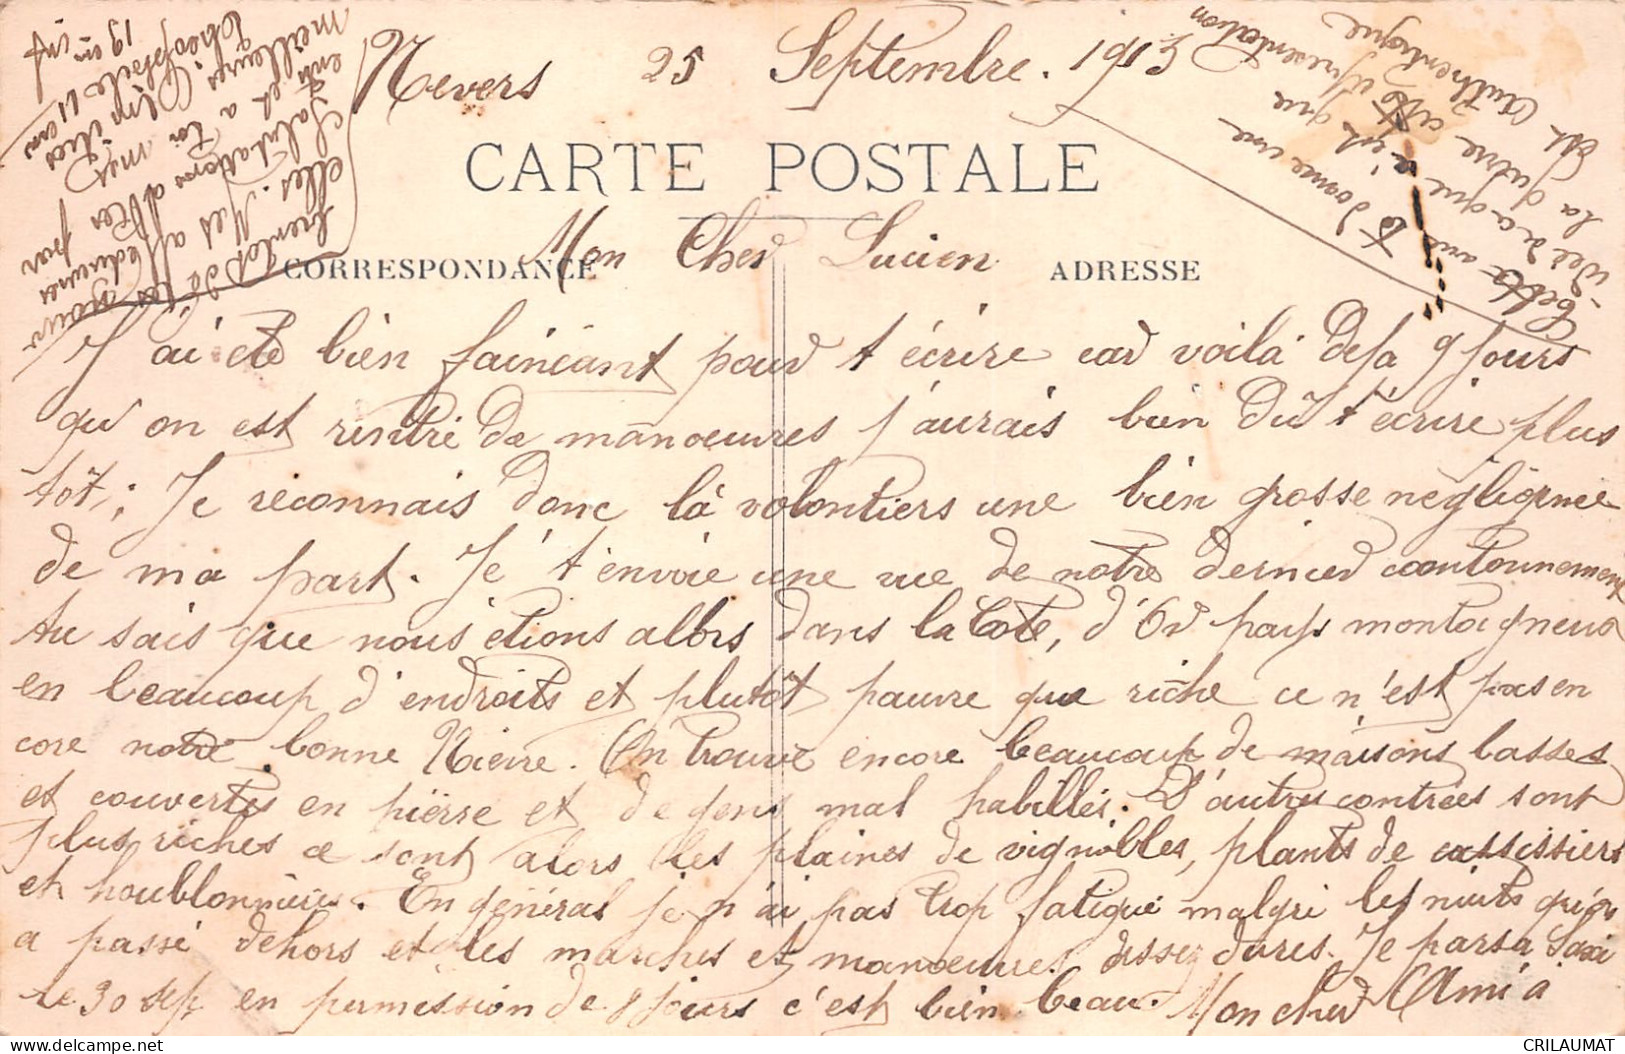 Nevers 25 Septembre. 1913
CARTE POSTALE
Mon Cher Lucien
CORRESPONDANCE
ADRESSE
J'ai été bien fainéant pour t'écrire car voilà deja 9 jours
qu'on est rentré de manoeuvres j'aurais bien dû t'écrire plus
tôt; Je reconnais donc là volontiers une bien grosse négligence
de ma part. Je t'envoie une vue de notre dernier cantonnement
tu sais que nous étions alors dans la Côte, d'Or pays montagneux
en beaucoup d'endroits et plutôt pauvre que riche ce n'est pas en
core notre bonne Nièvre. On trouve encore beaucoup de maisons basses
et couvertes en pierre et de gens mal habillés. D'autres contrées sont
plus riches ce sont alors les plaines de vignobles, plants de cassissiers
et houblonnières. En général je n'ai pas trop fatigué malgré les nuits qu'on
a passé dehors et les marches et manoeuvres assez dures. Je
re 30 sep en permission de 8 jours c'est bien beau. Mon cher Ami à
bientot de
elles. Mes
Salutations
et à toi
meilleures
Théophile
19 en inf
par
Cette vue
te donne une
idée de ce que c'est que
la cette représentation
est Authentique
CRILAUMAT